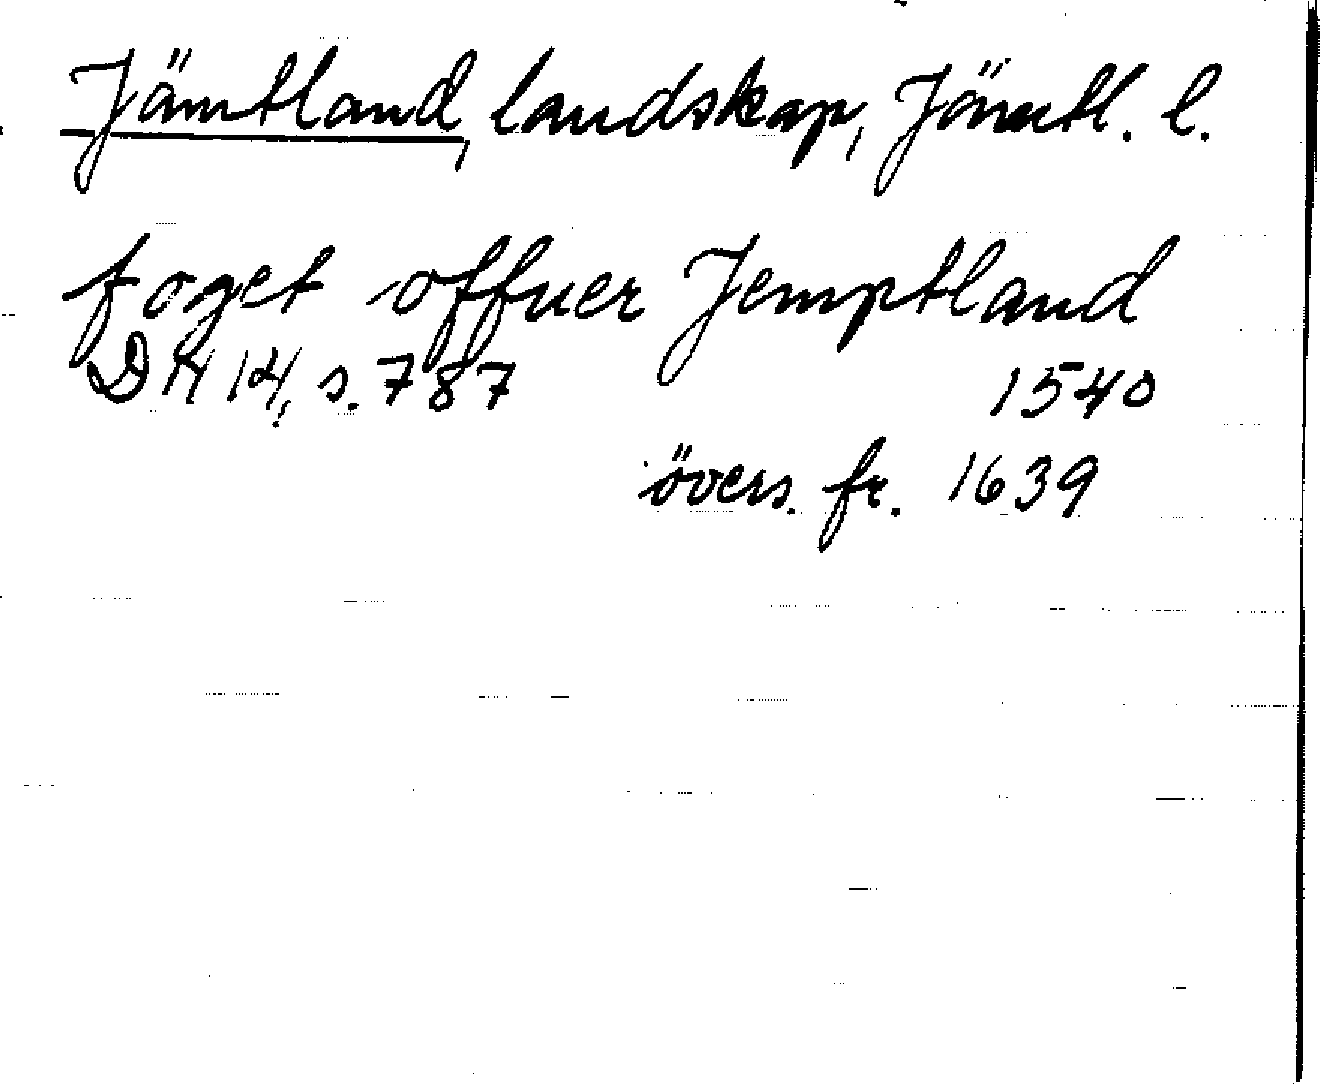 Jämtland, landskap, Jämtl. l.
foget offuer Jemptland
DN 14, s. 787 1540
övers. fr. 1639